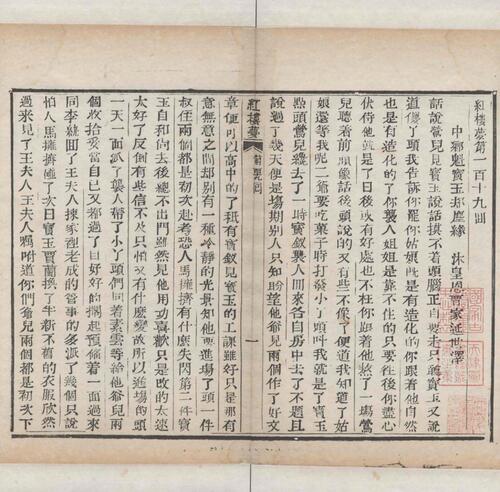 紅樓夢第一百十九回
中鄉魁寶玉却塵緣 沐皇恩賈家延世澤
話說鶯兒見寶玉說話摸不着頭腦正自要走只聽寶玉又說
道傻了頭我告訴你罷你姑娘旣是有造化的你跟着他自然
也是有造化的了你襲人姐姐是靠不住的只要往後你盡心
伏侍他就是了日後或有好處也不枉你跟着他熬了一塲鶯
兒聽着前頭像話後頭說的又有些不像了便道我知道了姑
娘還等我呢二爺要吃菓子時打發小了頭叫我就是了寶玉
點頭鶯兒纔去了一時寶釵襲人囘來各自房中去了不題且
說過了幾天便是塲期别人只知盼望他爺兒兩個作了好文
章便可以高中的了秪有寶釵見寶玉的工課雖好只是那有
紅樓夢
一
意無意之間却别有一種冷靜的光景知他要進塲了頭一件
叔侄兩個都是初次赴考恐人馬擁擠有什麽失閃第二件寶
玉自和尚去後總不出門雖然見他用功喜歡只是改的太速
太好了反倒有些信不及只怕又有什麽變故所以進塲的頭
一天一面派了襲人帶了小丫頭們同着素雲等給他爺兒兩
個收拾妥當自己又都過了目好好的擱起預備着一面過來
同李紈囘了王夫人揀家裡老成的管事的多派了幾個只說
怕人馬擁擠碰了次日寶玉賈蘭換了半新不舊的衣服欣然
過來見了王夫人王夫人囑咐道你們爺兒兩個都是初次下